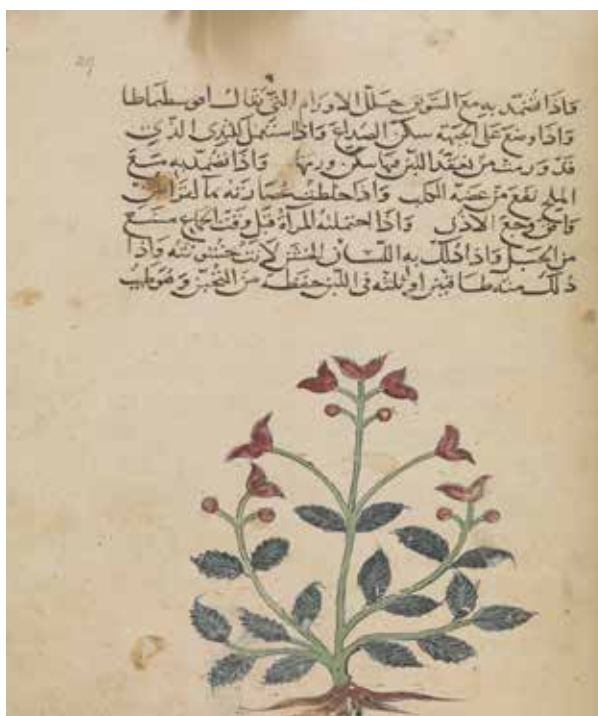 29
واذا تضمد به مع السويق حلل الاورام التي يقال
واذا وضع على الجبهة سكن الصداع واذا استعمل للثدي الذي
قد ورمت من تعقد اللبن فيها سكن ورمها واذا تضمد به مع
الملح نفع من عضة الكلب واذا خلطت عصارته
وافق وجع الاذن واذا احتملته المراة قبل وقت الجماع منع
من الحبل واذا دلك به اللسان الخشن لانت خشونته واذا
دلك منه طاقتين او ثلثه في اللبن حفظه من التجبن وهو طيب